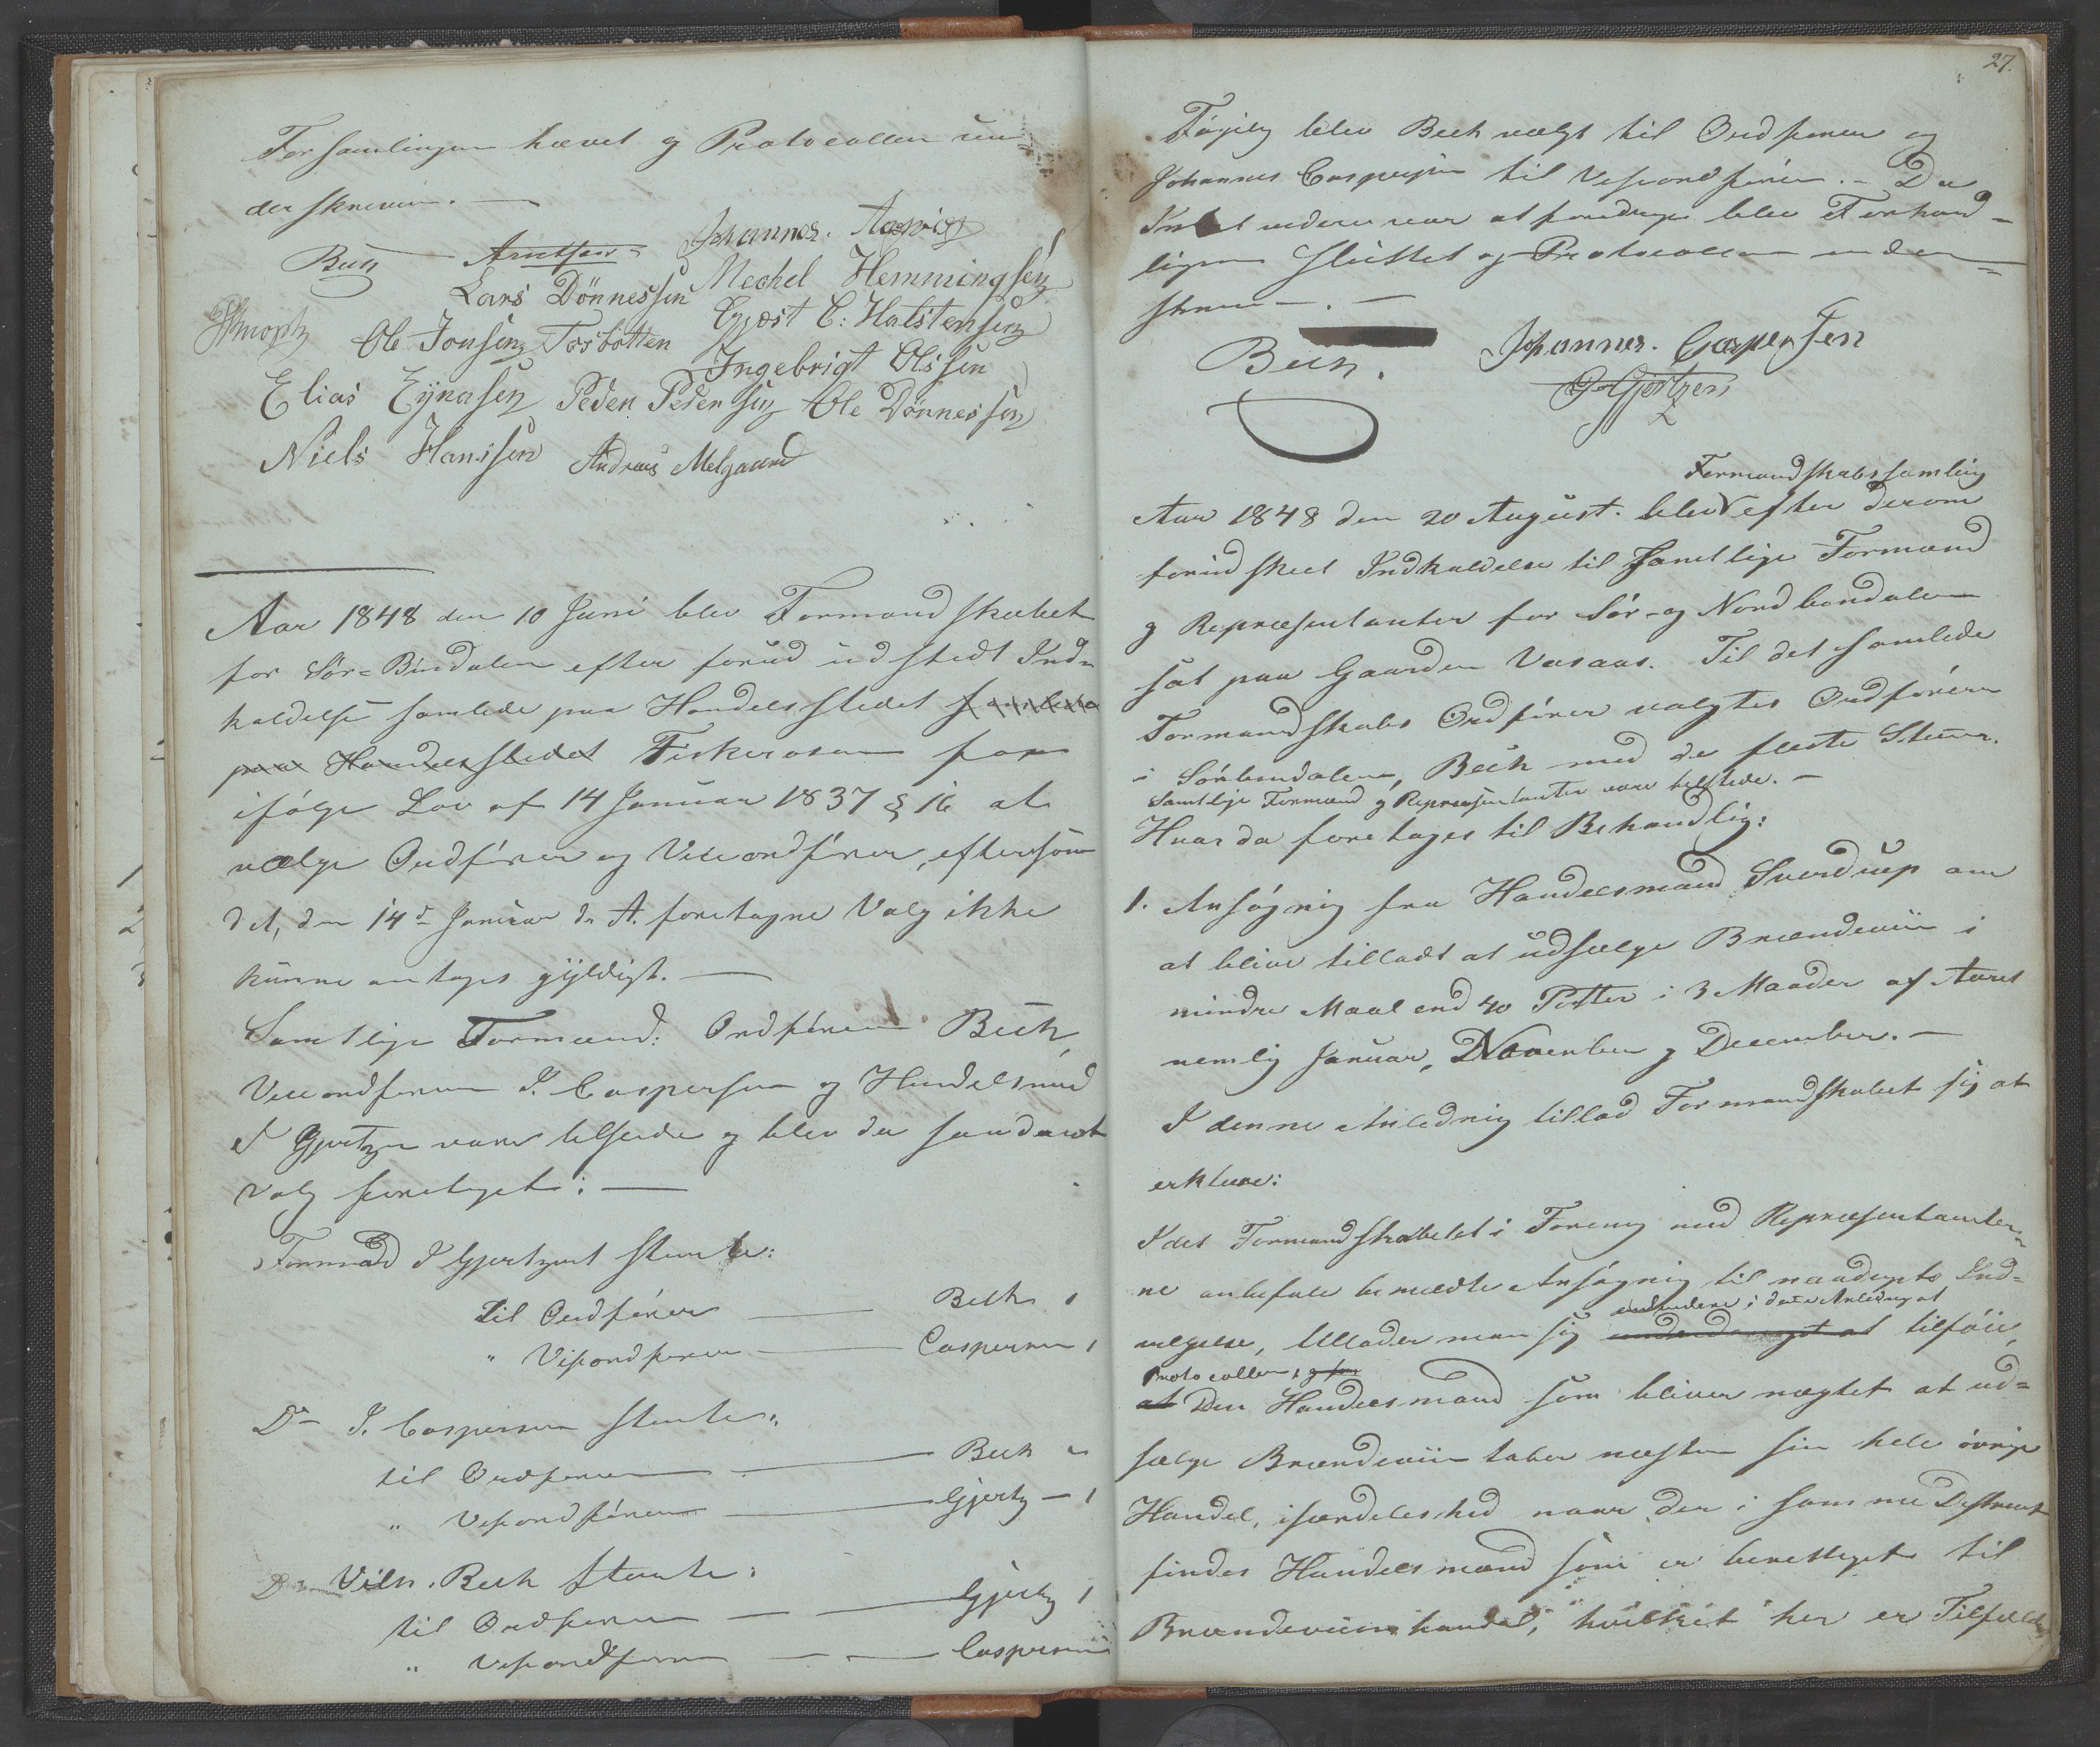 Forsamlingen hævet og Protocollen un-
derskreven. —
Bech Arntsen Johannes. Aagvig
Lars Dønnessen Mechel Hemmingsen
Ole Jonsen Tosbotten Gjøst C: Halstensen
Ingebrigt Olssen
Elias Ejnasen Peder Pedersen Ole Dønnessen
Niels Hanssen Andreas Melgaard
Aar 1848 den 10 Juni blev Formandskabet
for Sør-Bindalen efter forud udstedt Ind-
kaldelse samlede paa Handelsstedet samlede
paa Handelsstedet Terkerosen for
ifølge Lov af 14 Januar 1837 § 16 at
vælge Ordfører og Viceordfører, eftersom
det, den 14de Januar d. A. foretagne Valg ikke
kunne antages gyldigt. —
Samtlige Formænd: Ordføreren Bech,
Viceordføreren J. Caspersen og Handelsmand
J Gjertzen vare tilstede og blev da saadant
Valg foretaget: —
Formand J Gjertzen stemte:
Til Ordfører — Bech 1
" Viseordfører — Caspersen 1
Do J. Caspersen stemte:
til Ordfører — Bech "
" Viseordfører — Gjertz — 1
Do Vilh. Bech stemte:
til Ordfører — Gjertz 1
" Viseordfører — Caspersen
27.
Følgelig blev Bech valgt til Ordfører og
Johannes Caspersen til Viseordfører. - Da
Intet videre var at foredrage blev Forhand-
lingen sluttet og Protocollen under-
skreven. —
Bech. Johannes. Caspersen
J Gjertzen
Formandskabssamling
Aar 1848 den 20 August. blev efter derom
forud skeet Indkaldelse til samtlige Formænd
og Repræsentanter for Sør- og Nordbindalen
sat paa Gaarden Vasaas. Til det samlede
Formandskabs Ordfører valgtes Ordføreren
i Sørbindalen, Bech med de fleste Stemmer.
Samtlige Formænd og Repræsentanter vare tilstede. —
Hvorda foretages til Behandling:
1. Ansøgning fra Handelsmand Sverdrup om
at blive tilladt at udsælge Brændeviin i
mindre Maal end 40 Potter i 3 Maader af Aaret
nemlig Januar, November og December. —
I denne Anledning tillod Formandskabet sig at
erklære:
Idet Formandskabet i Forening med Repræsentanter-
ne anbefale bemeldte Ansøgning til naadigste Ind-
i denne Anledning at
vilgelse, tillader man sig tilføie,
Protocollen
at Den Handelsmand som bliver nægtet at ud-
sælge Brændeviin taber næsten sin hele øvrige
Handel, isærdeleshed naar der i samme Distrikt
findes Handelsmænd som er berettiget til
Brændeviinshandel, hvilket her er Tilfældet